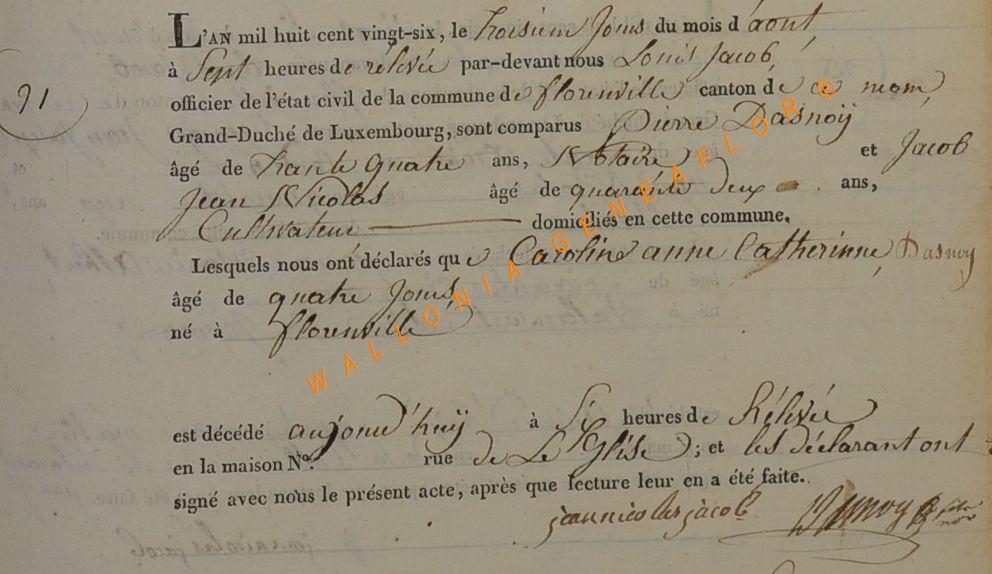 91
L'AN mil huit cent vingt-six, le troisieme jours du mois d'aout,
à Sept heures de rélévée par-devant nous Louis Jacob,
officier de l'état civil de la commune de florenville canton de ce nom,
Grand-Duché de Luxembourg, sont comparus Pierre Dasnoÿ
âgé de trante quatre ans, Notaire et Jacob
Jean Nicolas âgé de quarante deux ans,
Cultivateur domiciliés en cette commune.
Lesquels nous ont déclarés que Caroline anne Catherinne, Dasnoy
âgé de quatre jours,
né à florenville
est décédé aujourd'huÿ à Six heures de Rélévée
en la maison N°. rue de L'Eglise ; et les déclarant ont
signé avec nous le présent acte, après que lecture leur en a été faite.
jean nicolas jacob Dasnoy
WALLONIA GENEAFLOR ©